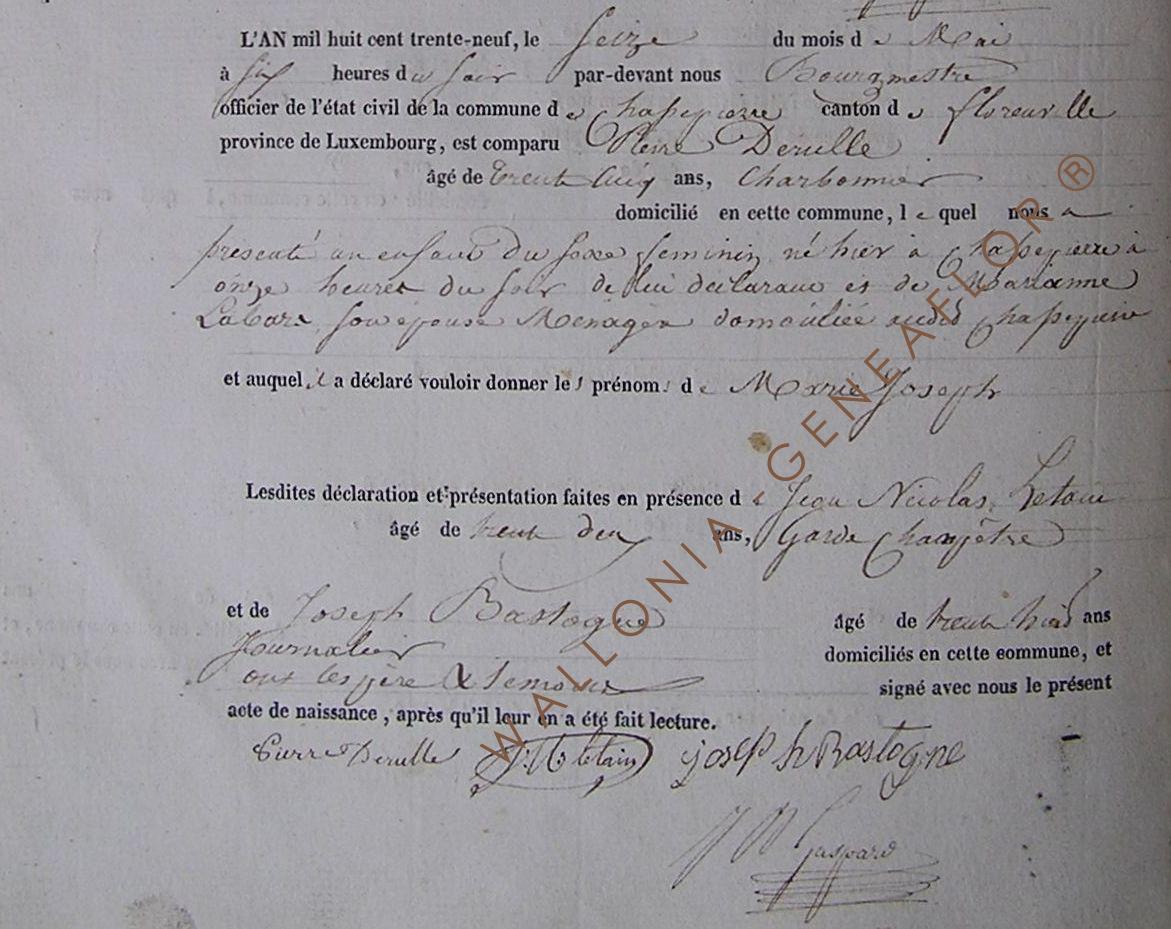 L'AN mil huit cent trente-neuf, le Seize du mois de Mai
à Six heures du Soir par-devant nous Bourgmestre
officier de l'état civil de la commune de Chapepierre canton de florenville
province de Luxembourg, est comparu Pierre Derulle
âgé de trente Cinq ans, Charbonnier
domicilié en cette commune, lequel nous a
présenté un enfant du sexe feminin né hier à Chapepierre à
onze heures du Soir de lui déclarant et de Marianne
son épouse Menagère domiciliée audit Chapepierre
et auquel il a déclaré vouloir donner les prénoms de Marie Joseph
Lesdites déclaration et présentation faites en présence de Jean Nicolas Letain
âgé de trente deux ans, Garde Champêtre
et de Joseph Bastogne âgé de trente huit ans
Journalier domiciliés en cette commune, et
ont les père & temoins signé avec nous le présent
acte de naissance, après qu'il leur en a été fait lecture.
Pierre Derulle J: N letain joseph Bastogne
Gaspard
WALLONIA GENEAFLOR ®